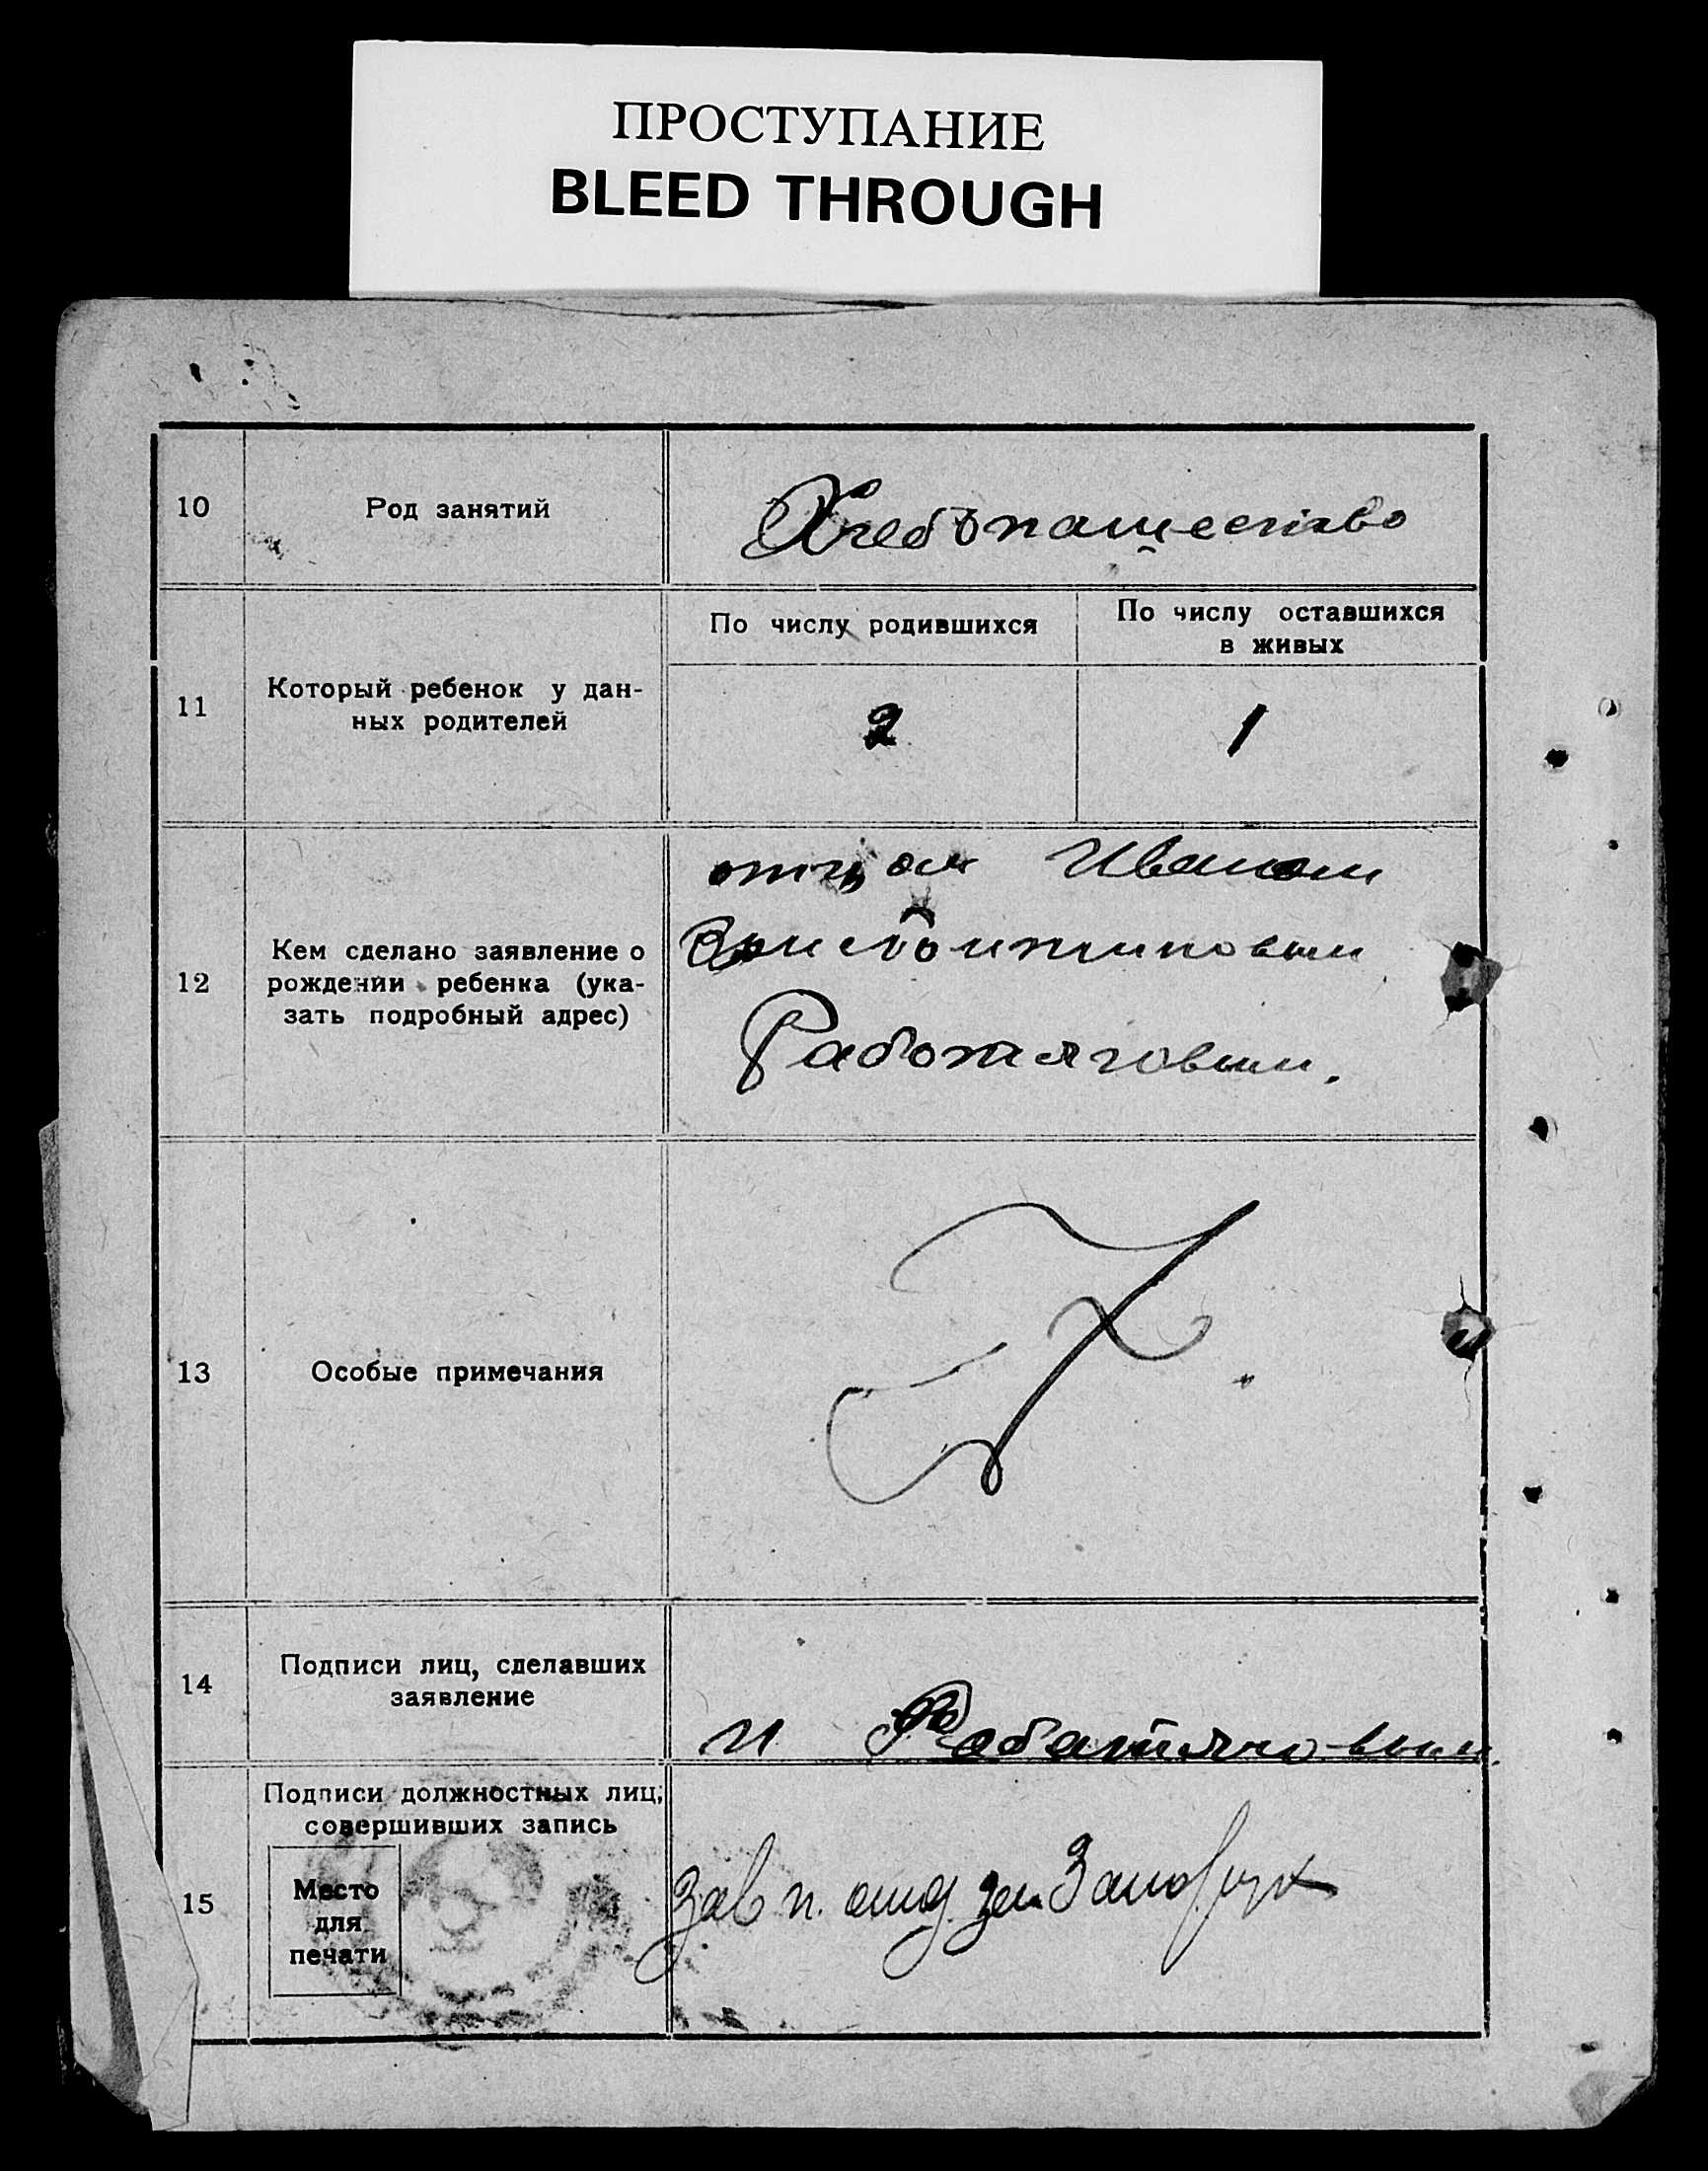 ПРОСТУПАНИЕ
BLEED THROUGH
10
Род занятий
Хлебопашество
11
Который ребенок у дан-
ных родителей
По числу родившихся
2
По числу оставшихся
в живых
1
12
Кем сделано заявление о
рождении ребенка (ука-
зать подробный адрес)
отцом Иваном
Работяговым.
13
Особые примечания
14
Подписи лиц, сделавших
заявление
И
15
Подписи должностных лиц,
совершивших запись
Место
для
печати
Зав п.